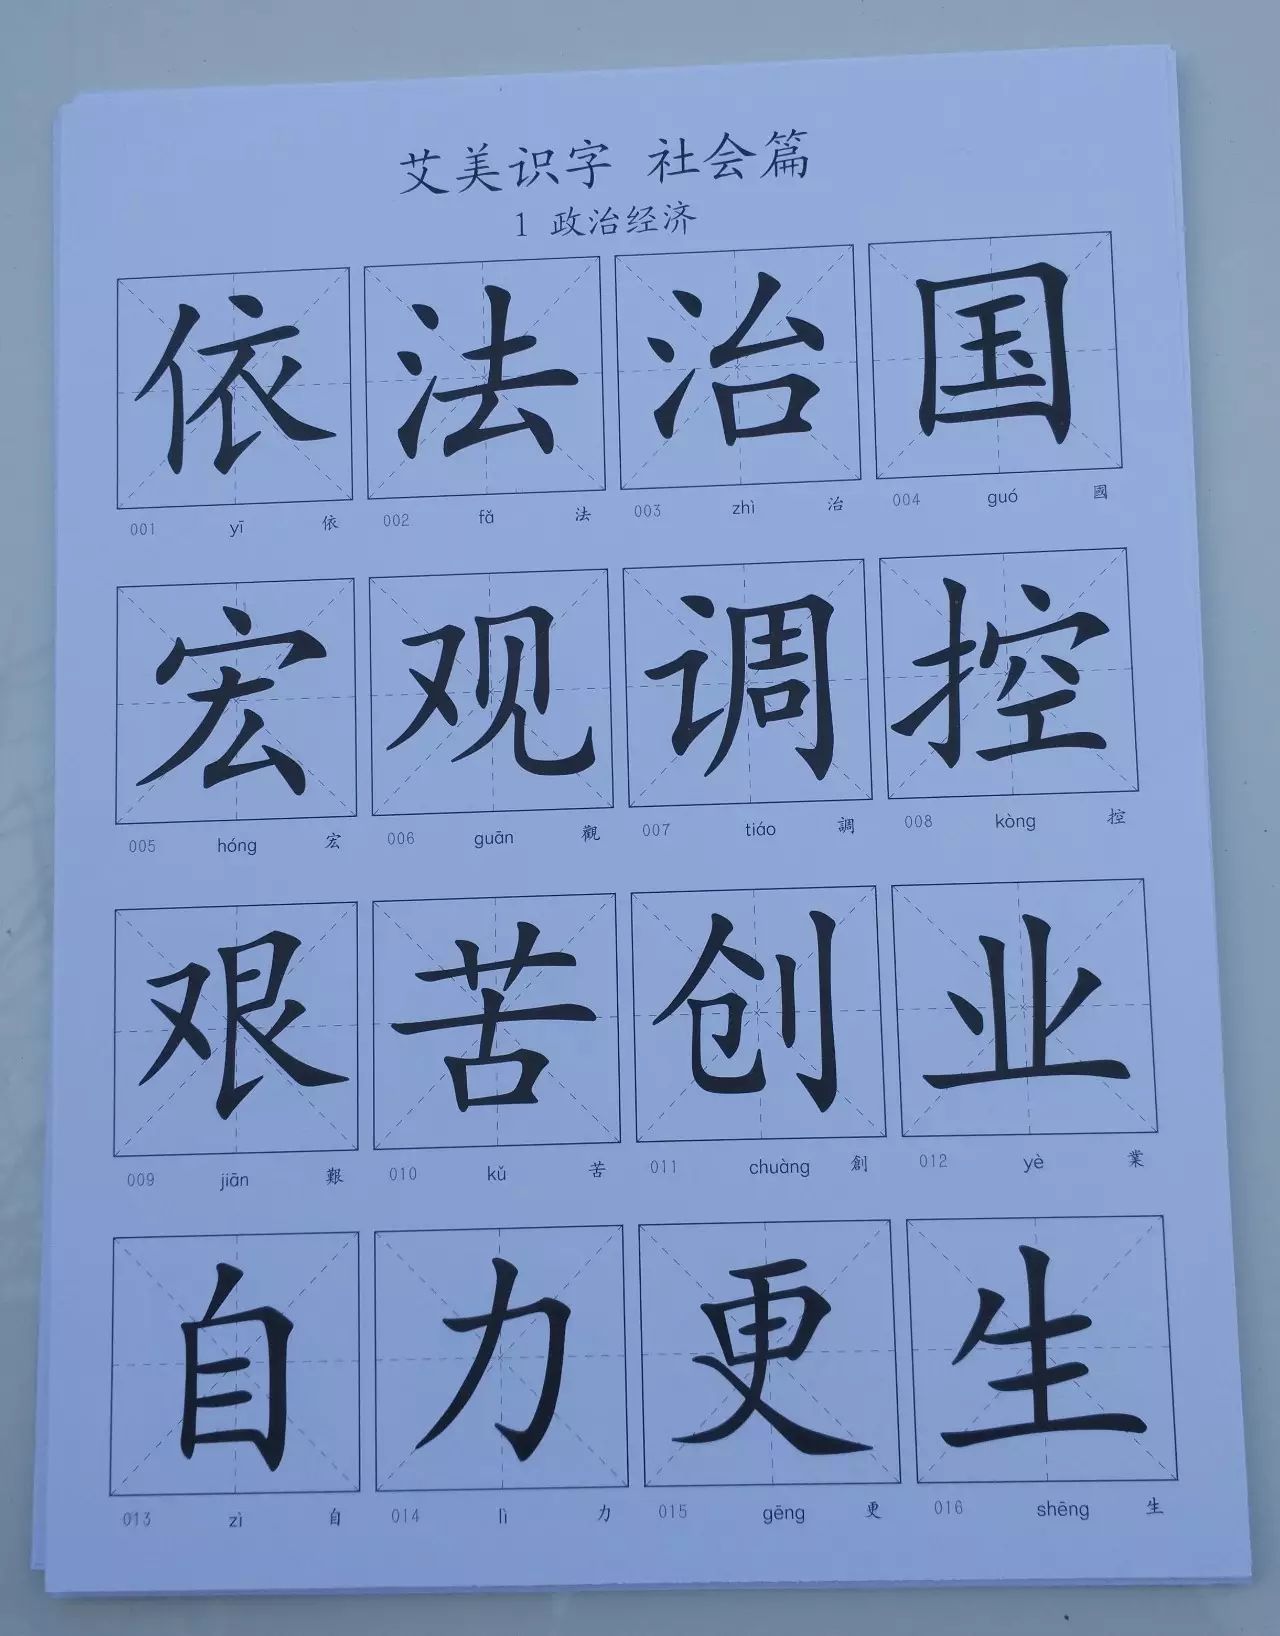 艾美识字 社会篇
1 政治经济
依 法 治 国
001 yī 依 002 fǎ 法 003 zhì 治 004 guó 國
宏 观 调 控
005 hóng 宏 006 guān 觀 007 tiáo 調 008 kòng 控
艰 苦 创 业
009 jiān 艱 010 kǔ 苦 011 chuàng 創 012 yè 業
自 力 更 生
013 zì 自 014 lì 力 015 gēng 更 016 shēng 生